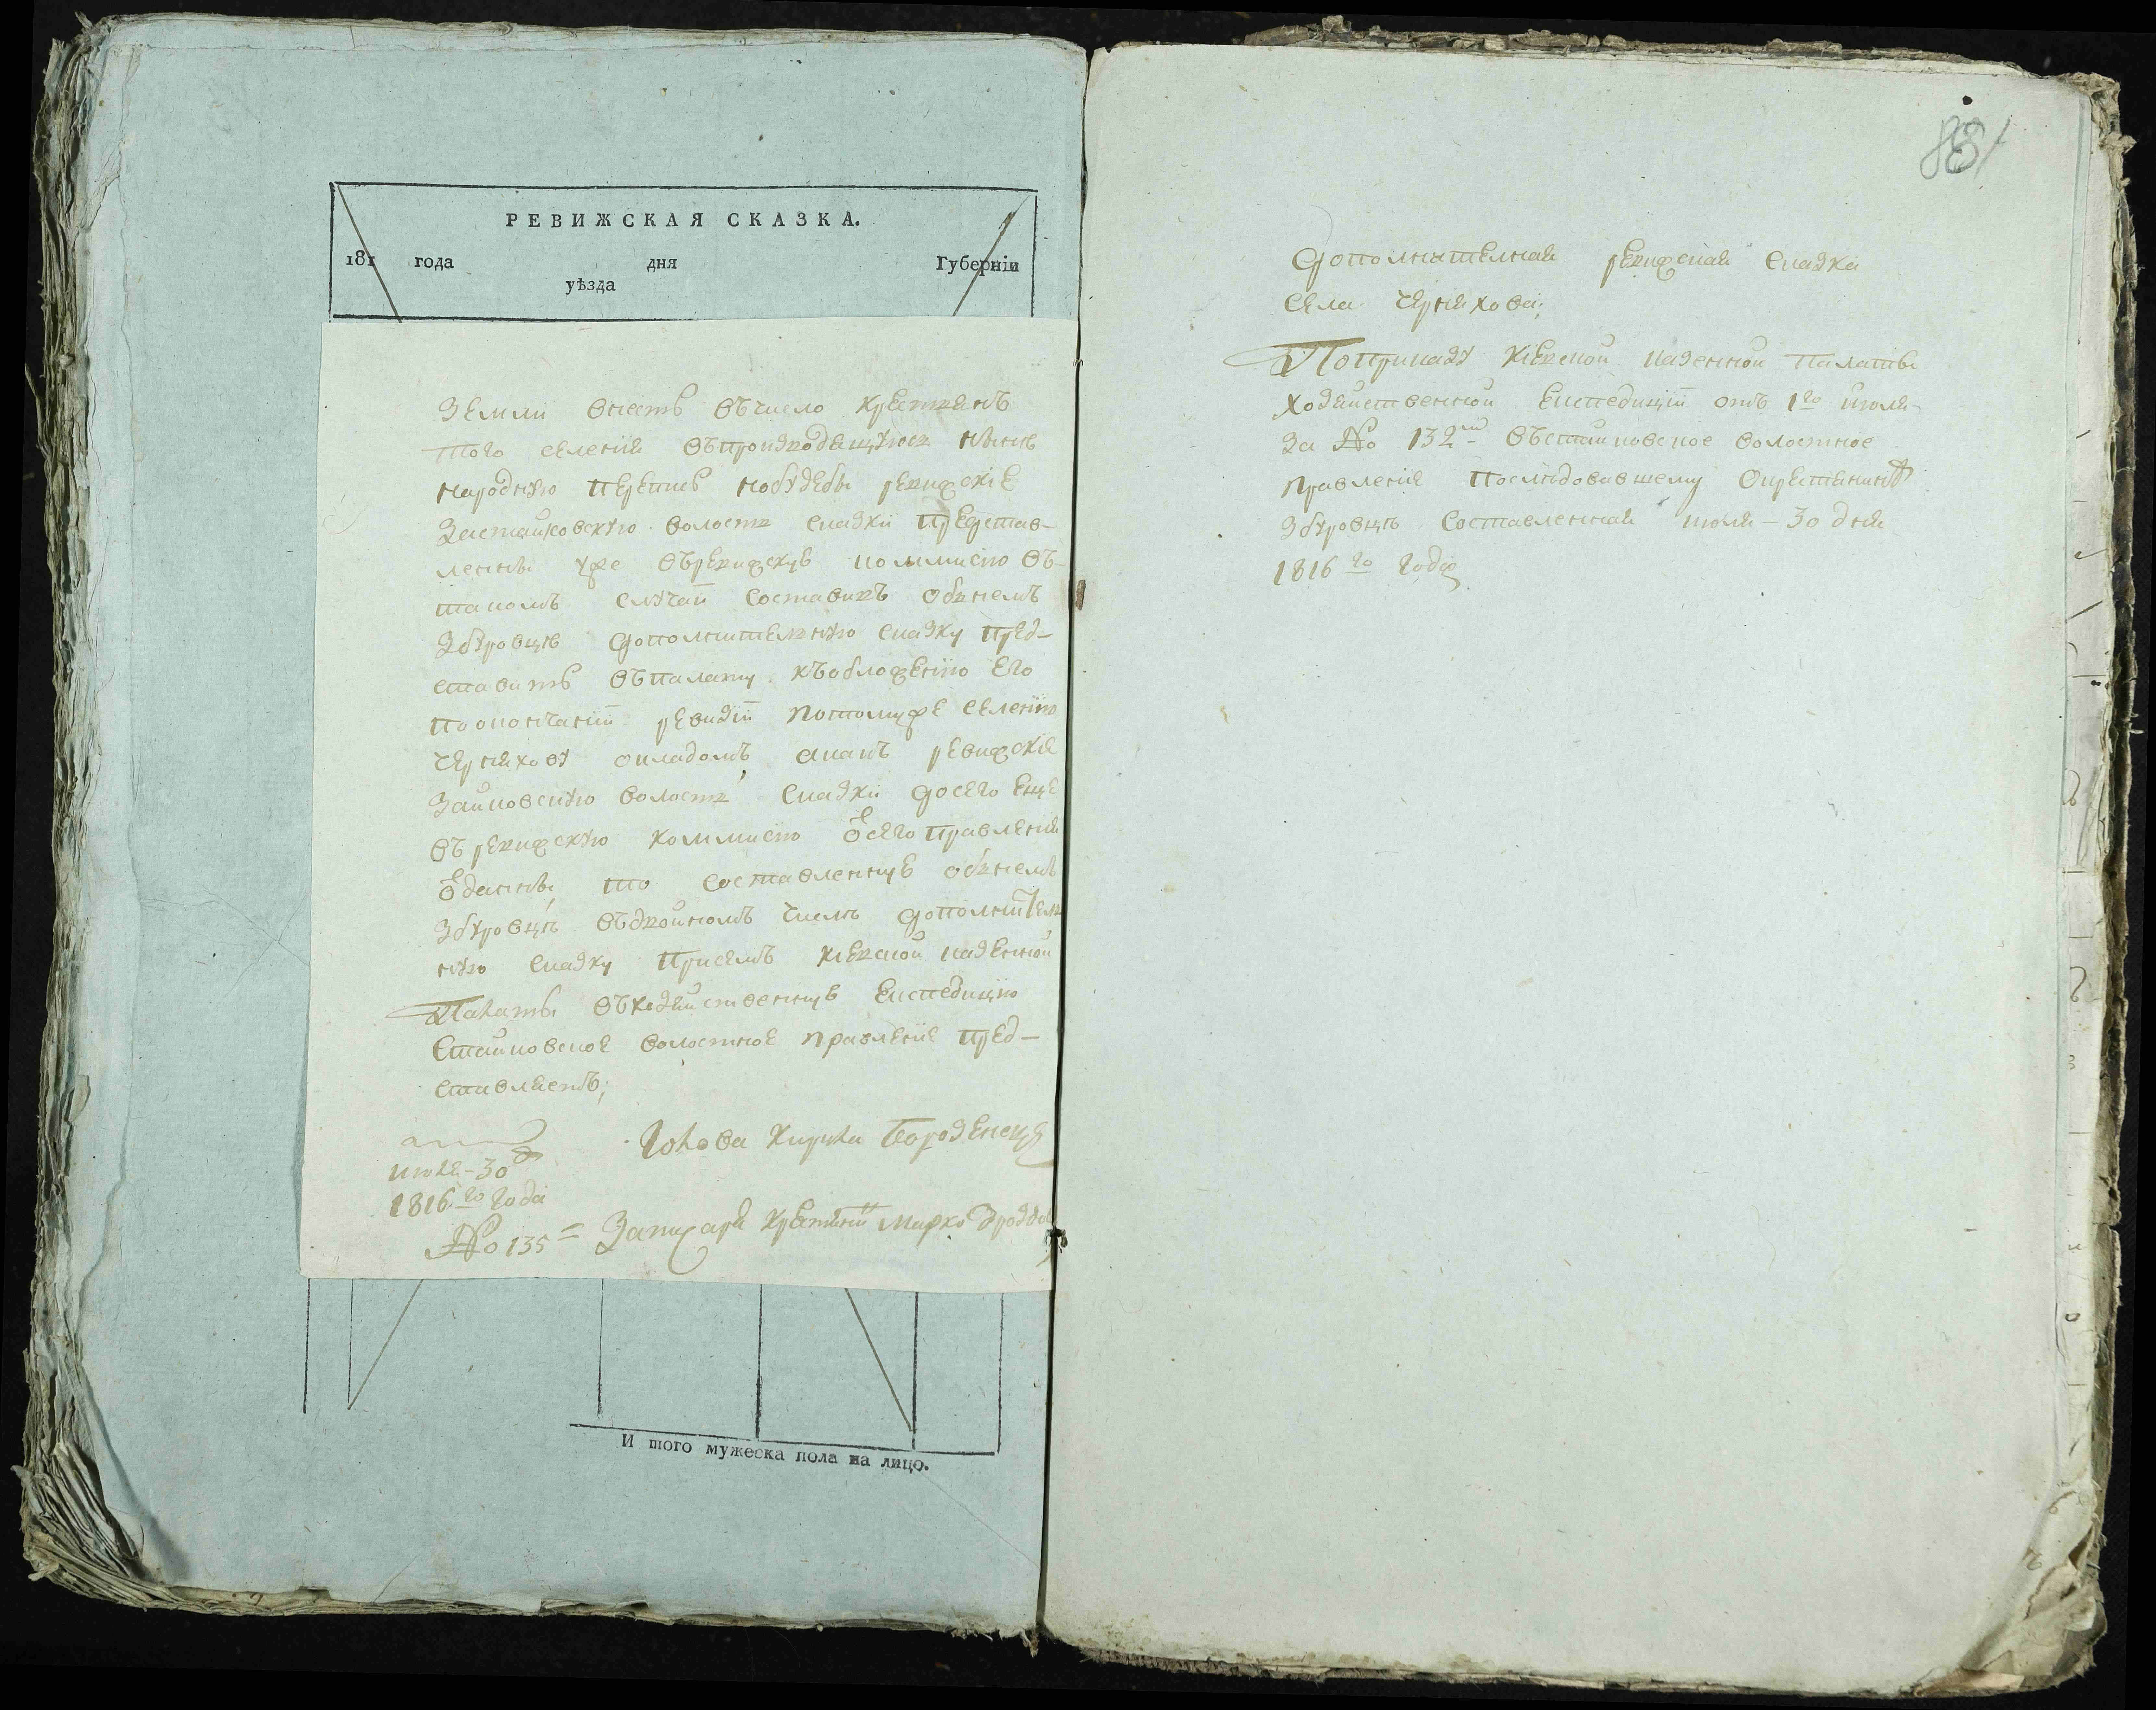 РЕВИЖСКАЯ СКАЗКА.
181 года дня Губерніи
уѣзда
Земли внесть въчисло крестьянъ
того селенія въпроизводящуюся нынѣ
народную перепись нобудебы ревижскіе
Застайковскую волость сказки представ-
лены уже въревижскую коммисію въ-
такомъ случаи составивъ обънемъ
Збуровцѣ дополнительную сказку пред-
ставить въпалату къобложенію его
поокончаніи ревизіи потомуже селенію
Черняхову окладомъ, акакъ ревижскіе
Зайковскую волость сказки досего еще
въревижскую коммисію ѿсего правленія
ѿданы, то составленную обънемъ
Збуровцѣ въдвойномъ числѣ дополнитель
ную сказку присемъ кіевской казенной
Палаты въхозяйственную експедицію
Стайковское волостное правленіе пред-
ставляетъ;
Голова Кирило
июля-30
1816го года
№ 135 = Запысаря крестянин Марко
И того мужеска пола на лицо.
881
Дополнителная ревижская сказка
села Черняхова;
Поприказу кіевской казенной палаты
хозяйственной експедиціи отъ 1го июля-
за № 132м въстайковское волостное
правленіе последовавшему окрестянинѣ
Збуровцѣ составленная июля-30 дня
1816го года